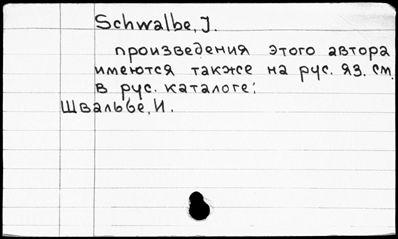 Schwalbe, J.
произведения этого автора
имеются также на рус. яз. см.
в рус. каталоге:
Швальбе, И.